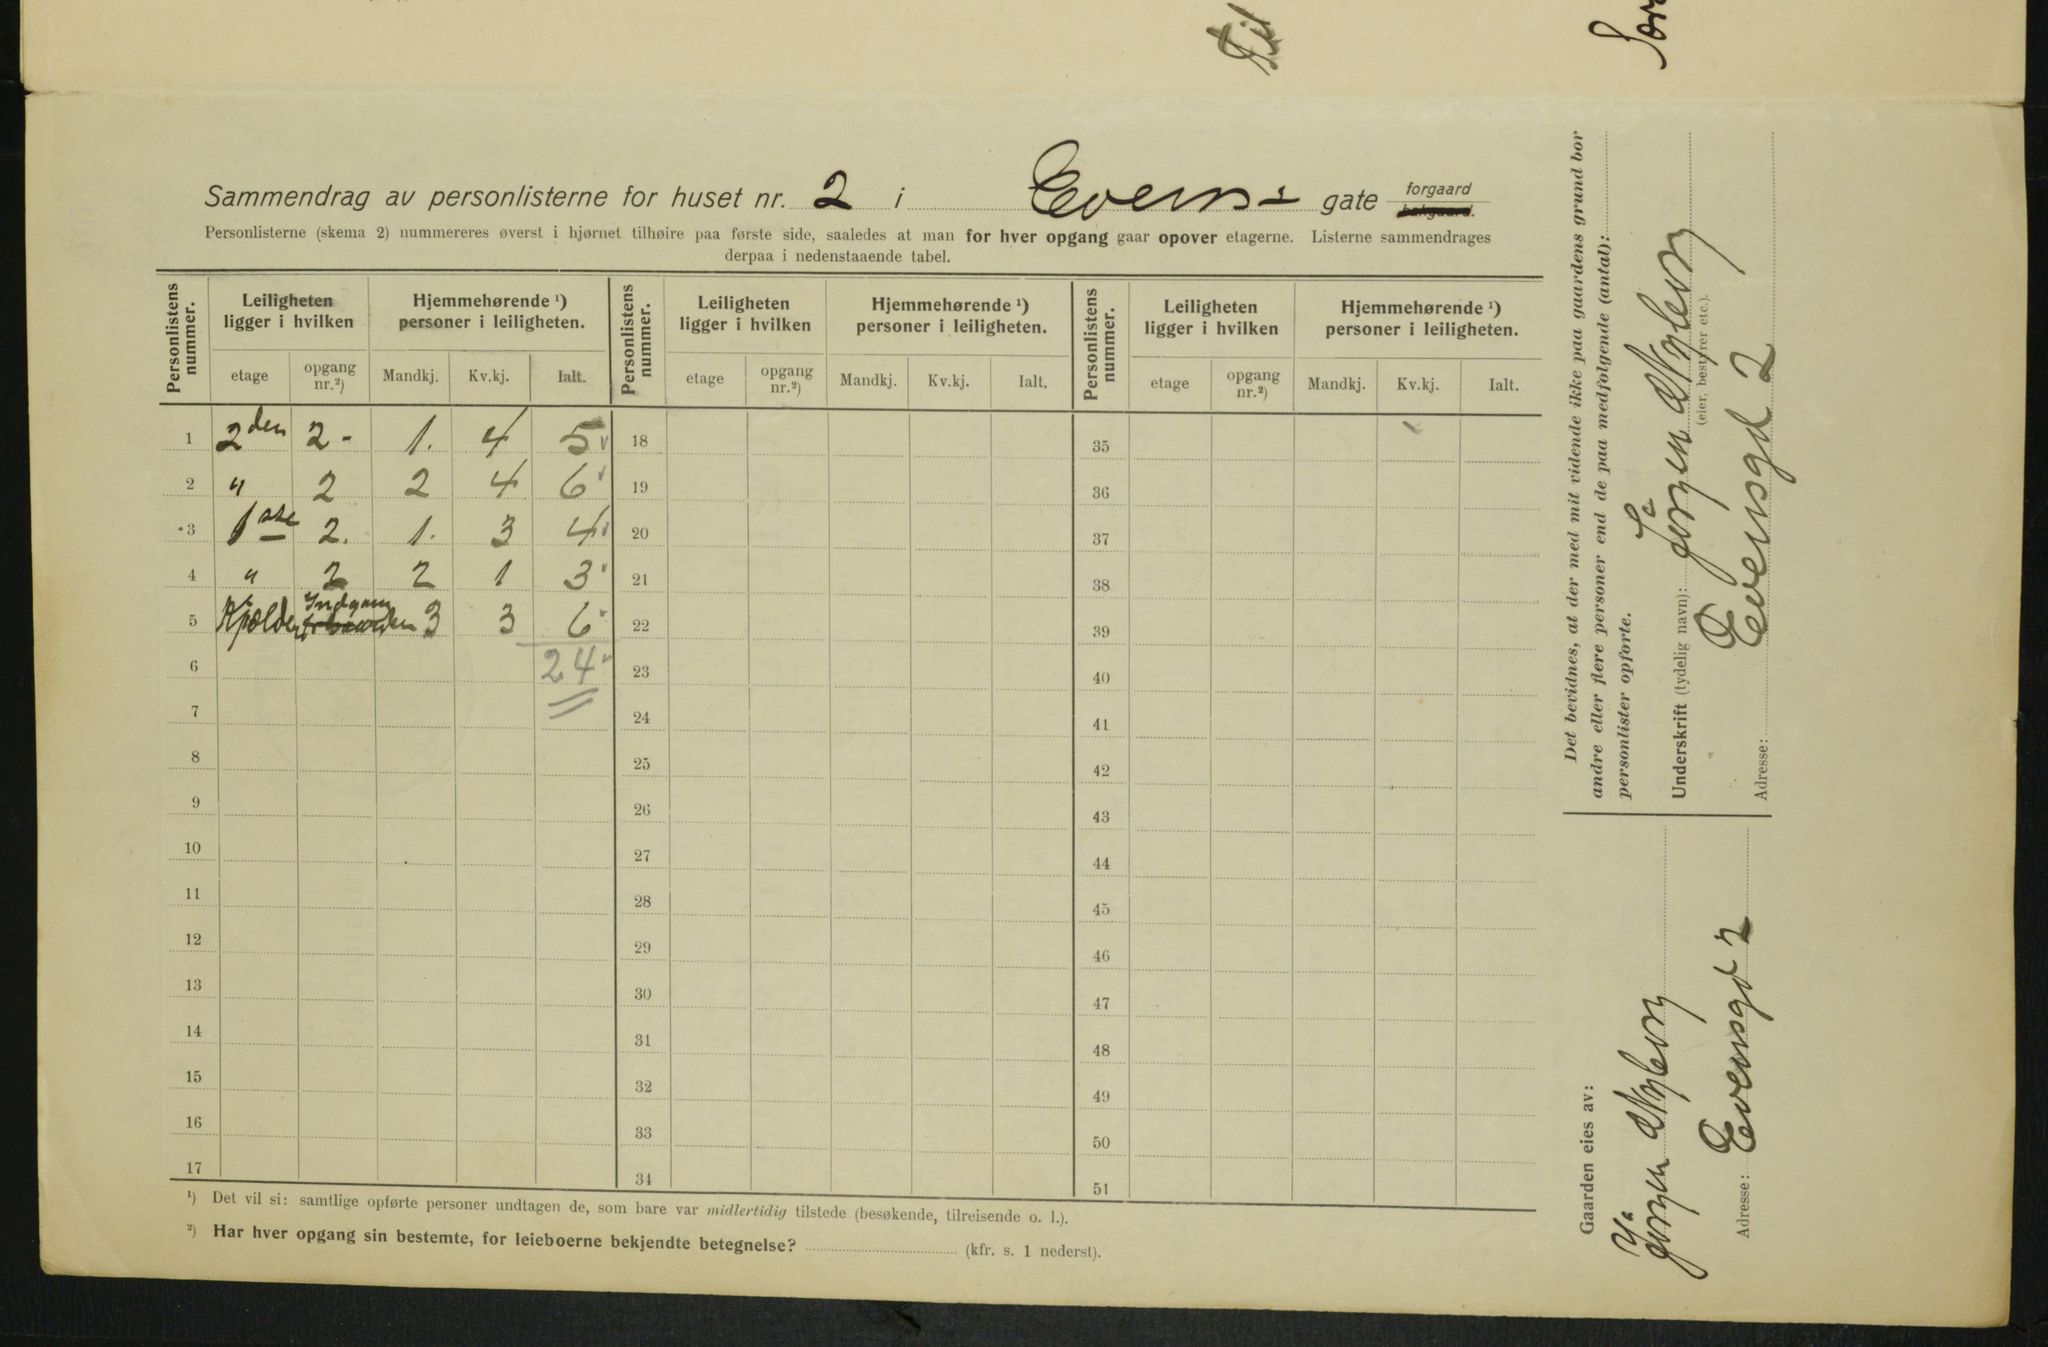 Til
Sammendrag av personlisterne for huset nr. 2 i Evens gate forgaard
bakgaard.
Personlisterne (skema 2) nummereres øverst i hjørnet tilhøire paa første side, saaledes at man for hver opgang gaar opover etagerne. Listerne sammendrages
derpaa i nedenstaaende tabel.
Personlistens nummer. Leiligheten ligger i hvilken Hjemmehørende ¹) personer i leiligheten. Personlistens nummer. Leiligheten ligger i hvilken Hjemmehørende ¹) personer i leiligheten. Personlistens nummer. Leiligheten ligger i hvilken Hjemmehørende ¹) personer i leiligheten.
etage opgang nr.²) Mandkj. Kv.kj. Ialt. etage opgang nr.²) Mandkj. Kv.kj. Ialt. etage opgang nr.²) Mandkj. Kv.kj. Ialt.
1 2den 2- 1. 4 5 18 35
2 " 2 2 4 6 19 36
3 1ste 2. 1. 3 4 20 37
4 " 2 2 1 3 21 38
5 Kjælder Indgang 3 3 6 22 39
6 24 23 40
7 24 41
8 25 42
9 26 43
10 27 44
11 28 45
12 29 46
13 30 47
14 31 48
15 32 49
16 33 50
17 34 51
¹) Det vil si: samtlige opførte personer undtagen de, som bare var midlertidig tilstede (besøkende, tilreisende o. l.).
²) Har hver opgang sin bestemte, for leieboerne bekjendte betegnelse? (kfr. s. 1 nederst).
Det bevidnes, at der med mit vidende ikke paa gaardens grund bor
andre eller flere personer end de paa medfølgende (antal):
personlister opførte.
Underskrift (tydelig navn): Jørgen Nyborg
(eier, bestyrer etc.).
Adresse: Evensgd 2
Gaarden eies av:
Jørgen Nyborg
Adresse: Evensgd 2